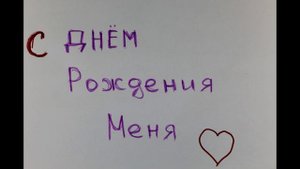 С ДНЁМ
Рождения
Меня